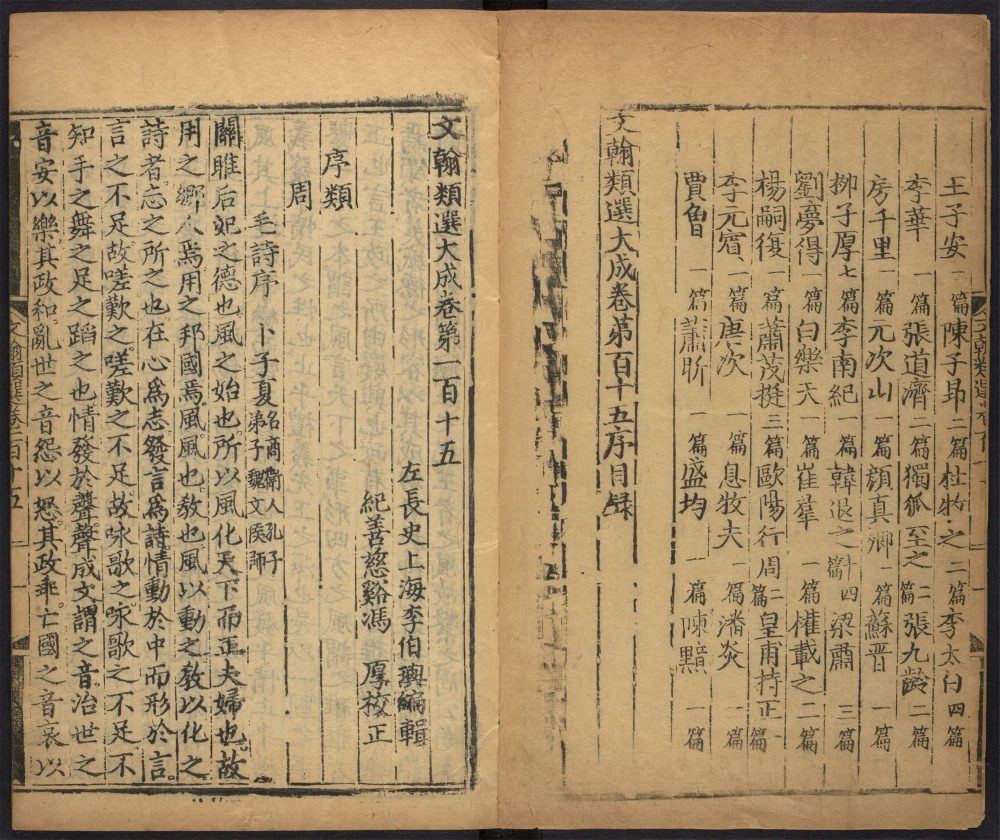 王子安一篇 陳子昂二篇 杜牧之二篇 李太白四篇
李華一篇 張道濟一篇 獨狐至之二篇 張九齡二篇
房千里一篇 元次山一篇 顔真卿一篇 蘇晋一篇
栁子厚七篇 李南紀一篇 韓退之十四篇 梁肅三篇
劉夢得一篇 白樂天一篇 崔羣一篇 權載之二篇
楊嗣復一篇 蕭茂挺三篇 歐陽行周二篇 皇甫持正一篇
李元賓一篇 唐次一篇 息牧夫一篇 潘炎一篇
賈曾一篇 蕭昕一篇 盛均一篇 陳黯一篇
文翰類選大成卷第百十五序目録
文翰類選大成卷第一百十五
左長史上海李伯璵編輯
紀善慈谿馮厚校正
序類
周
毛詩序 卜子夏 名商衛人孔子弟子魏文侯師
關雎后妃之德也風之始也所以風化天下而正夫婦也故
用之鄉人焉用之邦國焉風風也教也風以動之教以化之
詩者志之所之也在心爲志發言爲詩情動於中而形於言
言之不足故嗟歎之嗟歎之不足故咏歌之咏歌之不足不
知手之舞之足之蹈之也情發於聲聲成文謂之音治世之
音安以樂其政和亂世之音怨以怒其政乖亡國之音哀以
文翰類選卷一百十五